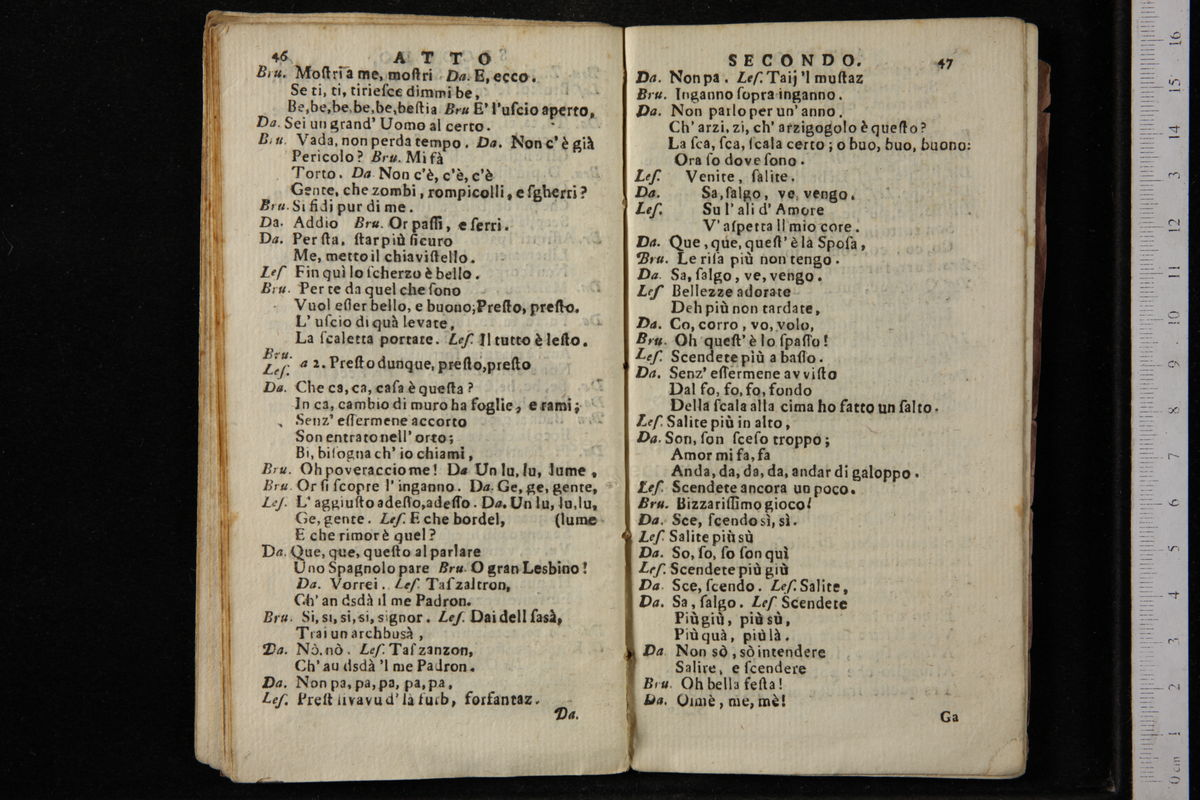 46 ATTO
Bru. Moſtri a me, moſtri Da. E, ecco.
Se ti, ti, tirieſce dimmi be,
Be, be, be, be, be, beſtia Bru E' l'uſcio aperto,
Da. Sei un grand' Uomo al certo.
Bru. Vada, non perda tempo. Da. Non c'è già
Pericolo? Bru. Mi fà
Torto. Da. Non c'è, c'è, c'è
Gente, che zombi, rompicolli, e ſgherri?
Bru. Si fidi pur di me.
Da. Addio Bru. Or paſſi, e ferri.
Da. Per ſta, ſtar più ſicuro
Me, metto il chiaviſtello.
Leſ Fin quì lo ſcherzo è bello.
Bru. Per te da quel che ſono
Vuol eſſer bello, e buono; Preſto, preſto.
L' uſcio di quà levate,
La ſcaletta portate. Leſ. Il tutto è leſto.
Bru.
Leſ. a 2. Preſto dunque, preſto, preſto
Da. Che ca, ca, caſa è queſta?
In ca, cambio di muro ha foglie, e rami;
Senz' eſſermene accorto
Son entrato nell' orto;
Bi, biſogna ch' io chiami,
Bru. Oh poveraccio me! Da Un lu, lu, lume,
Bru. Or ſi ſcopre l' inganno. Da. Ge, ge, gente,
Leſ. L' aggiuſto adeſſo, adeſſo. Da. Un lu, lu, lu,
Ge, gente. Leſ. E che bordel, (lume
E che rimor è quel?
Da. Que, que, queſto al parlare
Uno Spagnolo pare Bru. O gran Lesbino!
Da. Vorrei. Leſ. Taſ zaltron,
Ch' an dsdà il me Padron.
Bru. Si, si, si, si, signor. Leſ. Dai dell ſasà,
Trai un archbusà,
Da. Nò, nò. Leſ. Taſ zanzon,
Ch' au dsdà 'l me Padron.
Da. Non pa, pa, pa, pa, pa,
Leſ. Preſt livavu d' là furb, forfantaz.
Da.
SECONDO. 47
Da. Non pa. Leſ. Taij 'l muſtaz
Bru. Inganno ſopra inganno.
Da. Non parlo per un' anno.
Ch' arzi, zi, ch' arzigogolo è queſto?
La ſca, ſca, ſcala certo; o buo, buo, buono:
Ora ſo dove ſono.
Leſ. Venite, ſalite.
Da. Sa, ſalgo, ve, vengo.
Leſ. Su l' ali d' Amore
V' aſpetta Il mio core.
Da. Que, que, queſt' è la Spoſa,
Bru. Le riſa più non tengo.
Da. Sa, ſalgo, ve, vengo.
Leſ Bellezze adorate
Deh più non tardate,
Da. Co, corro, vo, volo,
Bru. Oh queſt' è lo ſpaſſo!
Leſ. Scendete più a baſſo.
Da. Senz' eſſermene avviſto
Dal fo, fo, fo, fondo
Della ſcala alla cima ho fatto un ſalto.
Leſ. Salite più in alto,
Da. Son, ſon ſceſo troppo;
Amor mi fa, fa
Anda, da, da, da, andar di galoppo.
Leſ. Scendete ancora un poco.
Bru. Bizzariſſimo gioco!
Da. Sce, ſcendo sì, sì.
Leſ Salite più sù
Da. So, ſo, ſo ſon quì
Leſ. Scendete più giù
Da. Sce, ſcendo. Leſ. Salite,
Da. Sa, ſalgo. Leſ Scendete
Più giù, più sù,
Più quà, più là.
Da Non sò, sò intendere
Salire, e ſcendere
Bru. Oh bella feſta!
Da. Oimè, me, mè!
Ga
16
15
14
13
12
11
10
9
8
7
6
5
4
3
2
1
0 cm